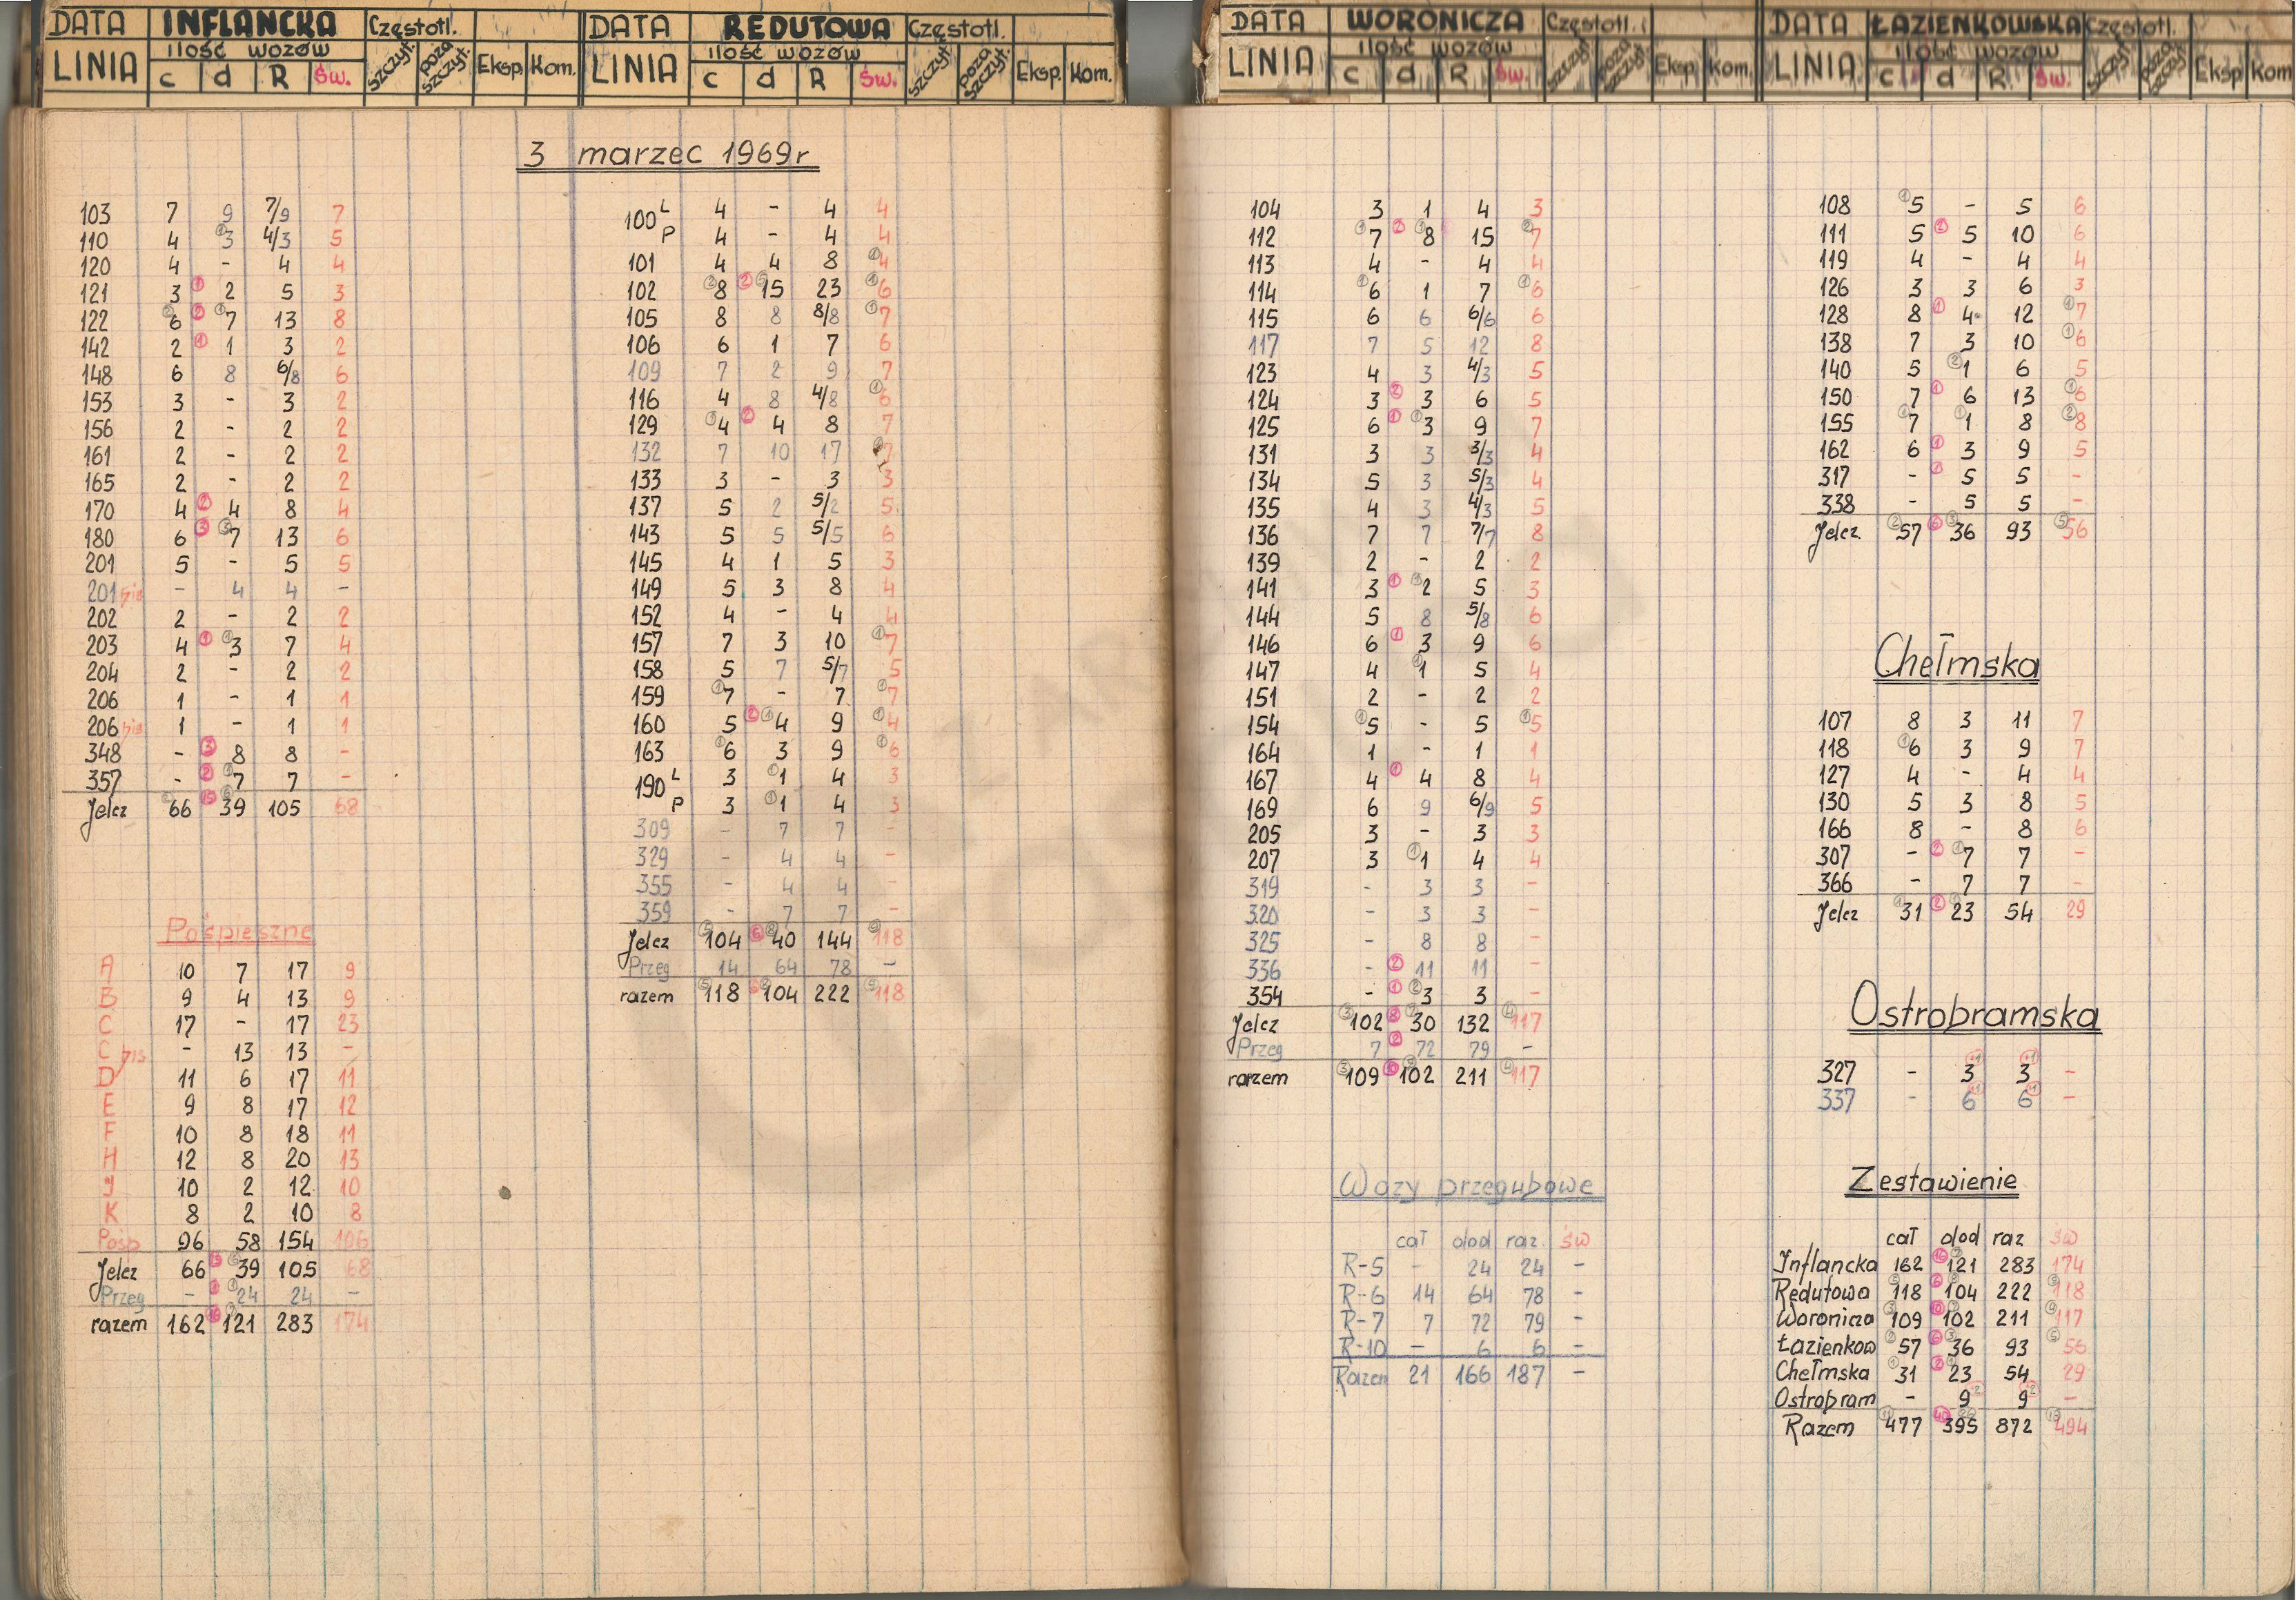 DATA INFLANCKA Częstotl.
LINIA ilość wozów
c d R Św. szczyt. poza szczyt. Eksp. Kom.
DATA REDUTOWA Częstotl.
LINIA ilość wozów
c d R Św. szczyt. poza szczyt. Eksp. Kom.
DATA WORONICZA Częstotl.
LINIA ilość wozów
c d R Św. szczyt. poza szczyt. Eksp. Kom.
DATA ŁAZIENKOWSKA Częstotl.
LINIA ilość wozów
c d R Św. szczyt. poza szczyt. Eksp Kom
3 marzec 1969r
103 7 9 7/9 7
110 4 ①3 4/3 5
120 4 - 4 4
121 3 ① 2 5 3
122 ②6 ② ①7 13 8
142 2 ① 1 3 2
148 6 8 6/8 6
153 3 - 3 2
156 2 - 2 2
161 2 - 2 2
165 2 - 2 2
170 4 ② 4 8 4
180 6 ③ ③7 13 6
201 5 - 5 5
201 bis - 4 4 -
202 2 - 2 2
203 4 ① ①3 7 4
204 2 - 2 2
206 1 - 1 1
206 bis 1 - 1 1
348 - ③ 8 8 -
357 - ② ①7 7 -
Jelcz ②66 ⑮ ⑥39 105 68
Pośpieszne
A 10 7 17 9
B 9 4 13 9
C 17 - 17 23
C bis - 13 13 -
D 11 6 17 11
E 9 8 17 12
F 10 8 18 11
H 12 8 20 13
J 10 2 12 10
K 8 2 10 8
Pośp 96 58 154 106
Jelcz 66 ⑮ ⑥39 105 68
Przeg - ① ①24 24 -
razem 162 ⑯ ⑦121 283 174
100 L 4 - 4 4
P 4 - 4 4
101 4 4 8 ①4
102 ②8 ② ⑤15 23 ①6
105 8 8 8/8 ①7
106 6 1 7 6
109 7 2 9 7
116 4 8 4/8 ①6
129 ①4 ② 4 8 7
132 7 10 17 7
133 3 - 3 3
137 5 2 5/2 5
143 5 5 5/5 6
145 4 1 5 3
149 5 3 8 4
152 4 - 4 4
157 7 3 10 ①7
158 5 7 5/7 5
159 ①7 - 7 ①7
160 5 ② ①4 9 ①4
163 ①6 3 9 ①6
190 L 3 ①1 4 3
P 3 ①1 4 3
309 - 7 7 -
329 - 4 4 -
355 - 4 4 -
359 - 7 7 -
Jelcz ⑤104 ⑥ ⑧40 144 118
Przeg 14 64 78 -
razem ⑤118 ⑥ ⑧104 222 118
104 3 1 4 3
112 ①7 ② ①8 15 ②7
113 4 - 4 4
114 ①6 1 7 ①6
115 6 6 6/6 6
117 7 5 12 8
123 4 3 4/3 5
124 3 ② 3 6 5
125 6 ① ①3 9 7
131 3 3 3/3 4
134 5 3 5/3 4
135 4 3 4/3 5
136 7 7 7/7 8
139 2 - 2 2
141 3 ① ①2 5 3
144 5 8 5/8 6
146 6 ① 3 9 6
147 4 ①1 5 4
151 2 - 2 2
154 ①5 - 5 ①5
164 1 - 1 1
167 4 ① 4 8 4
169 6 9 6/9 5
205 3 - 3 3
207 3 ①1 4 4
319 - 3 3 -
320 - 3 3 -
325 - 8 8 -
336 - ② 11 11 -
354 - ① ②3 3 -
Jelcz ③102 ⑧ ⑦30 132 ④117
Przeg 7 ② 72 79 -
razem ③109 ⑩ ⑦102 211 ④117
Wozy przegubowe
cał dod raz. św
R-5 - 24 24 -
R-6 14 64 78 -
R-7 7 72 79 -
R-10 - 6 6 -
Razem 21 166 187 -
108 ①5 - 5 6
111 5 ② 5 10 6
119 4 - 4 4
126 3 3 6 3
128 8 ① 4 12 ①7
138 7 3 10 ①6
140 5 ②1 6 5
150 7 ① 6 13 ①6
155 ①7 ①1 8 ②8
162 6 ① 3 9 5
317 - ① 5 5 -
338 - 5 5 -
Jelcz. ②57 ⑥ ③36 93 ⑤56
Chełmska
107 8 3 11 7
118 ①6 3 9 7
127 4 - 4 4
130 5 3 8 5
166 8 - 8 6
307 - ② ①7 7 -
366 - 7 7 -
Jelcz ①31 ② ①23 54 29
Ostrobramska
327 - 3+1 3+1 -
337 - 6+1 6+1 -
Zestawienie
cał dod raz św
Inflancka 162 ⑯ ⑦121 283 174
Redutowa ⑤118 ⑥ ⑧104 222 118
Woronicza ③109 ⑩ ⑦102 211 ④117
Łazienkow ②57 ⑥ ③36 93 ⑤56
Chełmska ①31 ② ①23 54 29
Ostrobram - 9+2 9+2 -
Razem 477 ㊵ 395 872 494